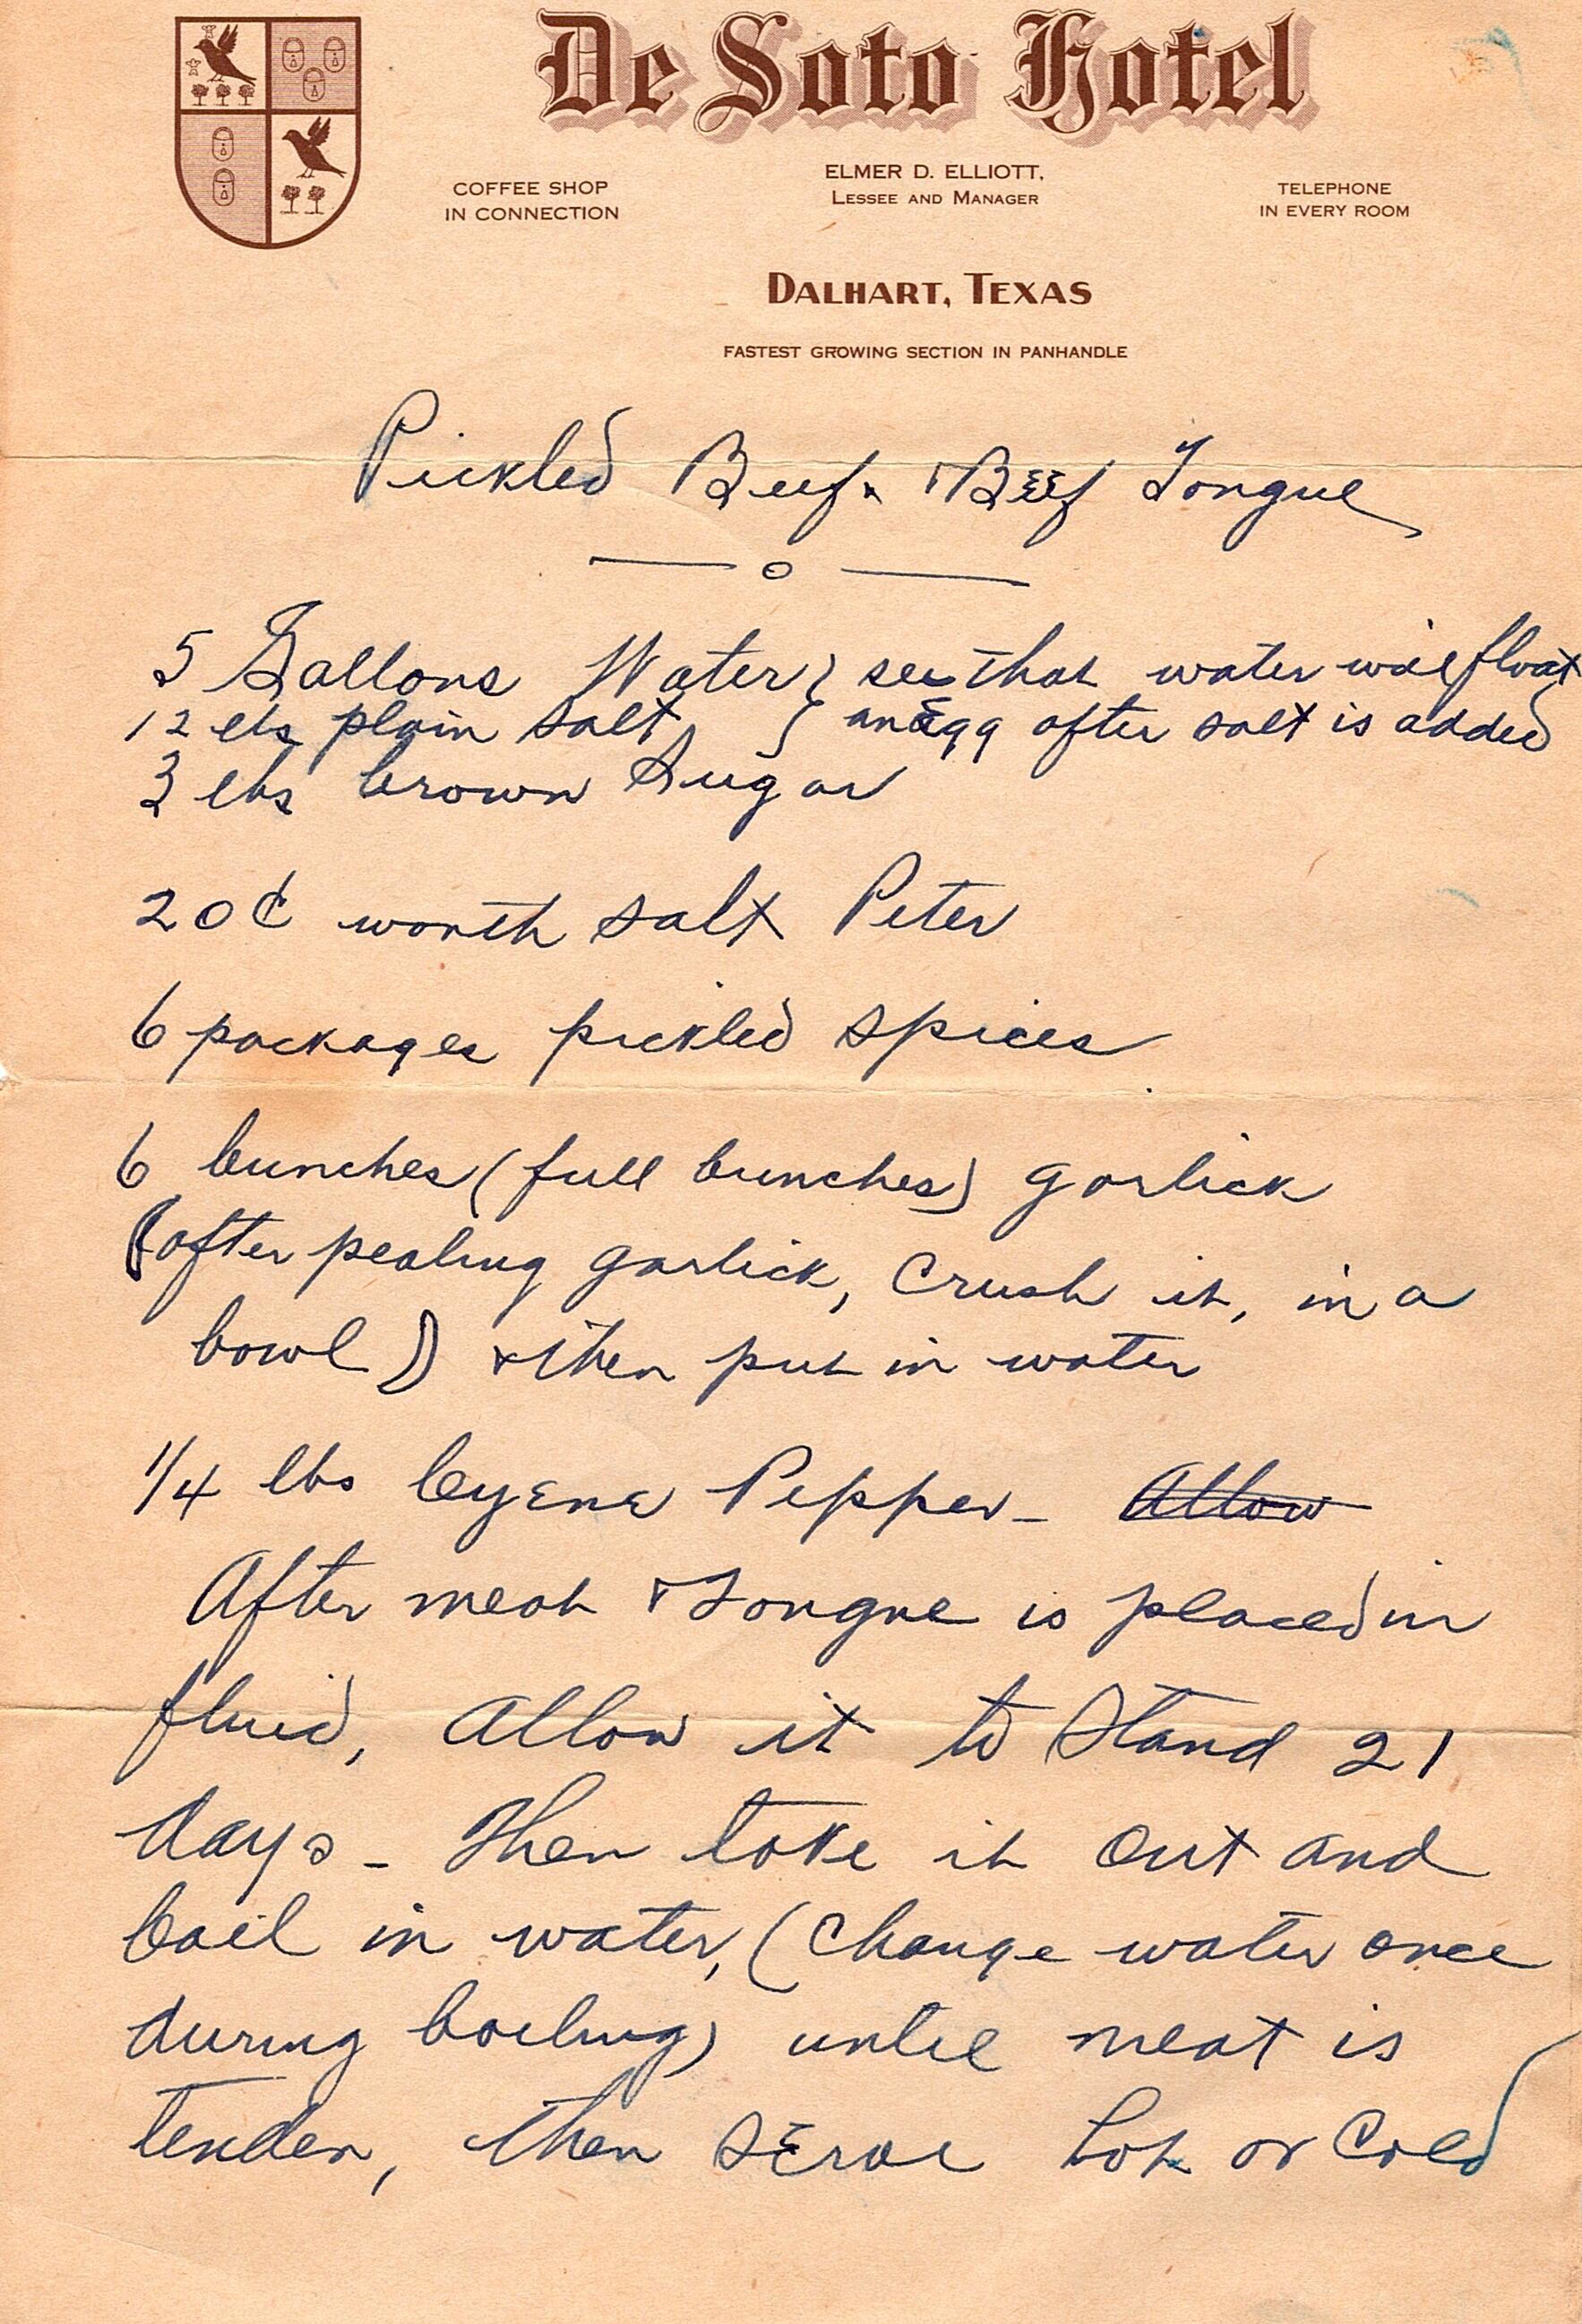 De Soto Hotel
ELMER D. ELLIOTT,
LESSEE AND MANAGER
COFFEE SHOP
IN CONNECTION
TELEPHONE
IN EVERY ROOM
DALHART, TEXAS
FASTEST GROWING SECTION IN PANHANDLE
Pickled Beef & Beef Tongue
5 Gallons Water } see that water will float
12 lbs plain salt } an Egg after salt is added
3 lbs brown Sugar
20¢ worth salt Peter
6 packages pickled spices
6 bunches (full bunches) garlick
(after pealing garlick, Crush it, in a
bowl) & then put in water
1/4 lbs Cyene Pepper - Allow
After meat & Tongue is placed in
fluid, Allow it to Stand 21
days - Then take it out and
boil in water, (Change water once
during boiling) until meat is
tender, then serve hot or Cold